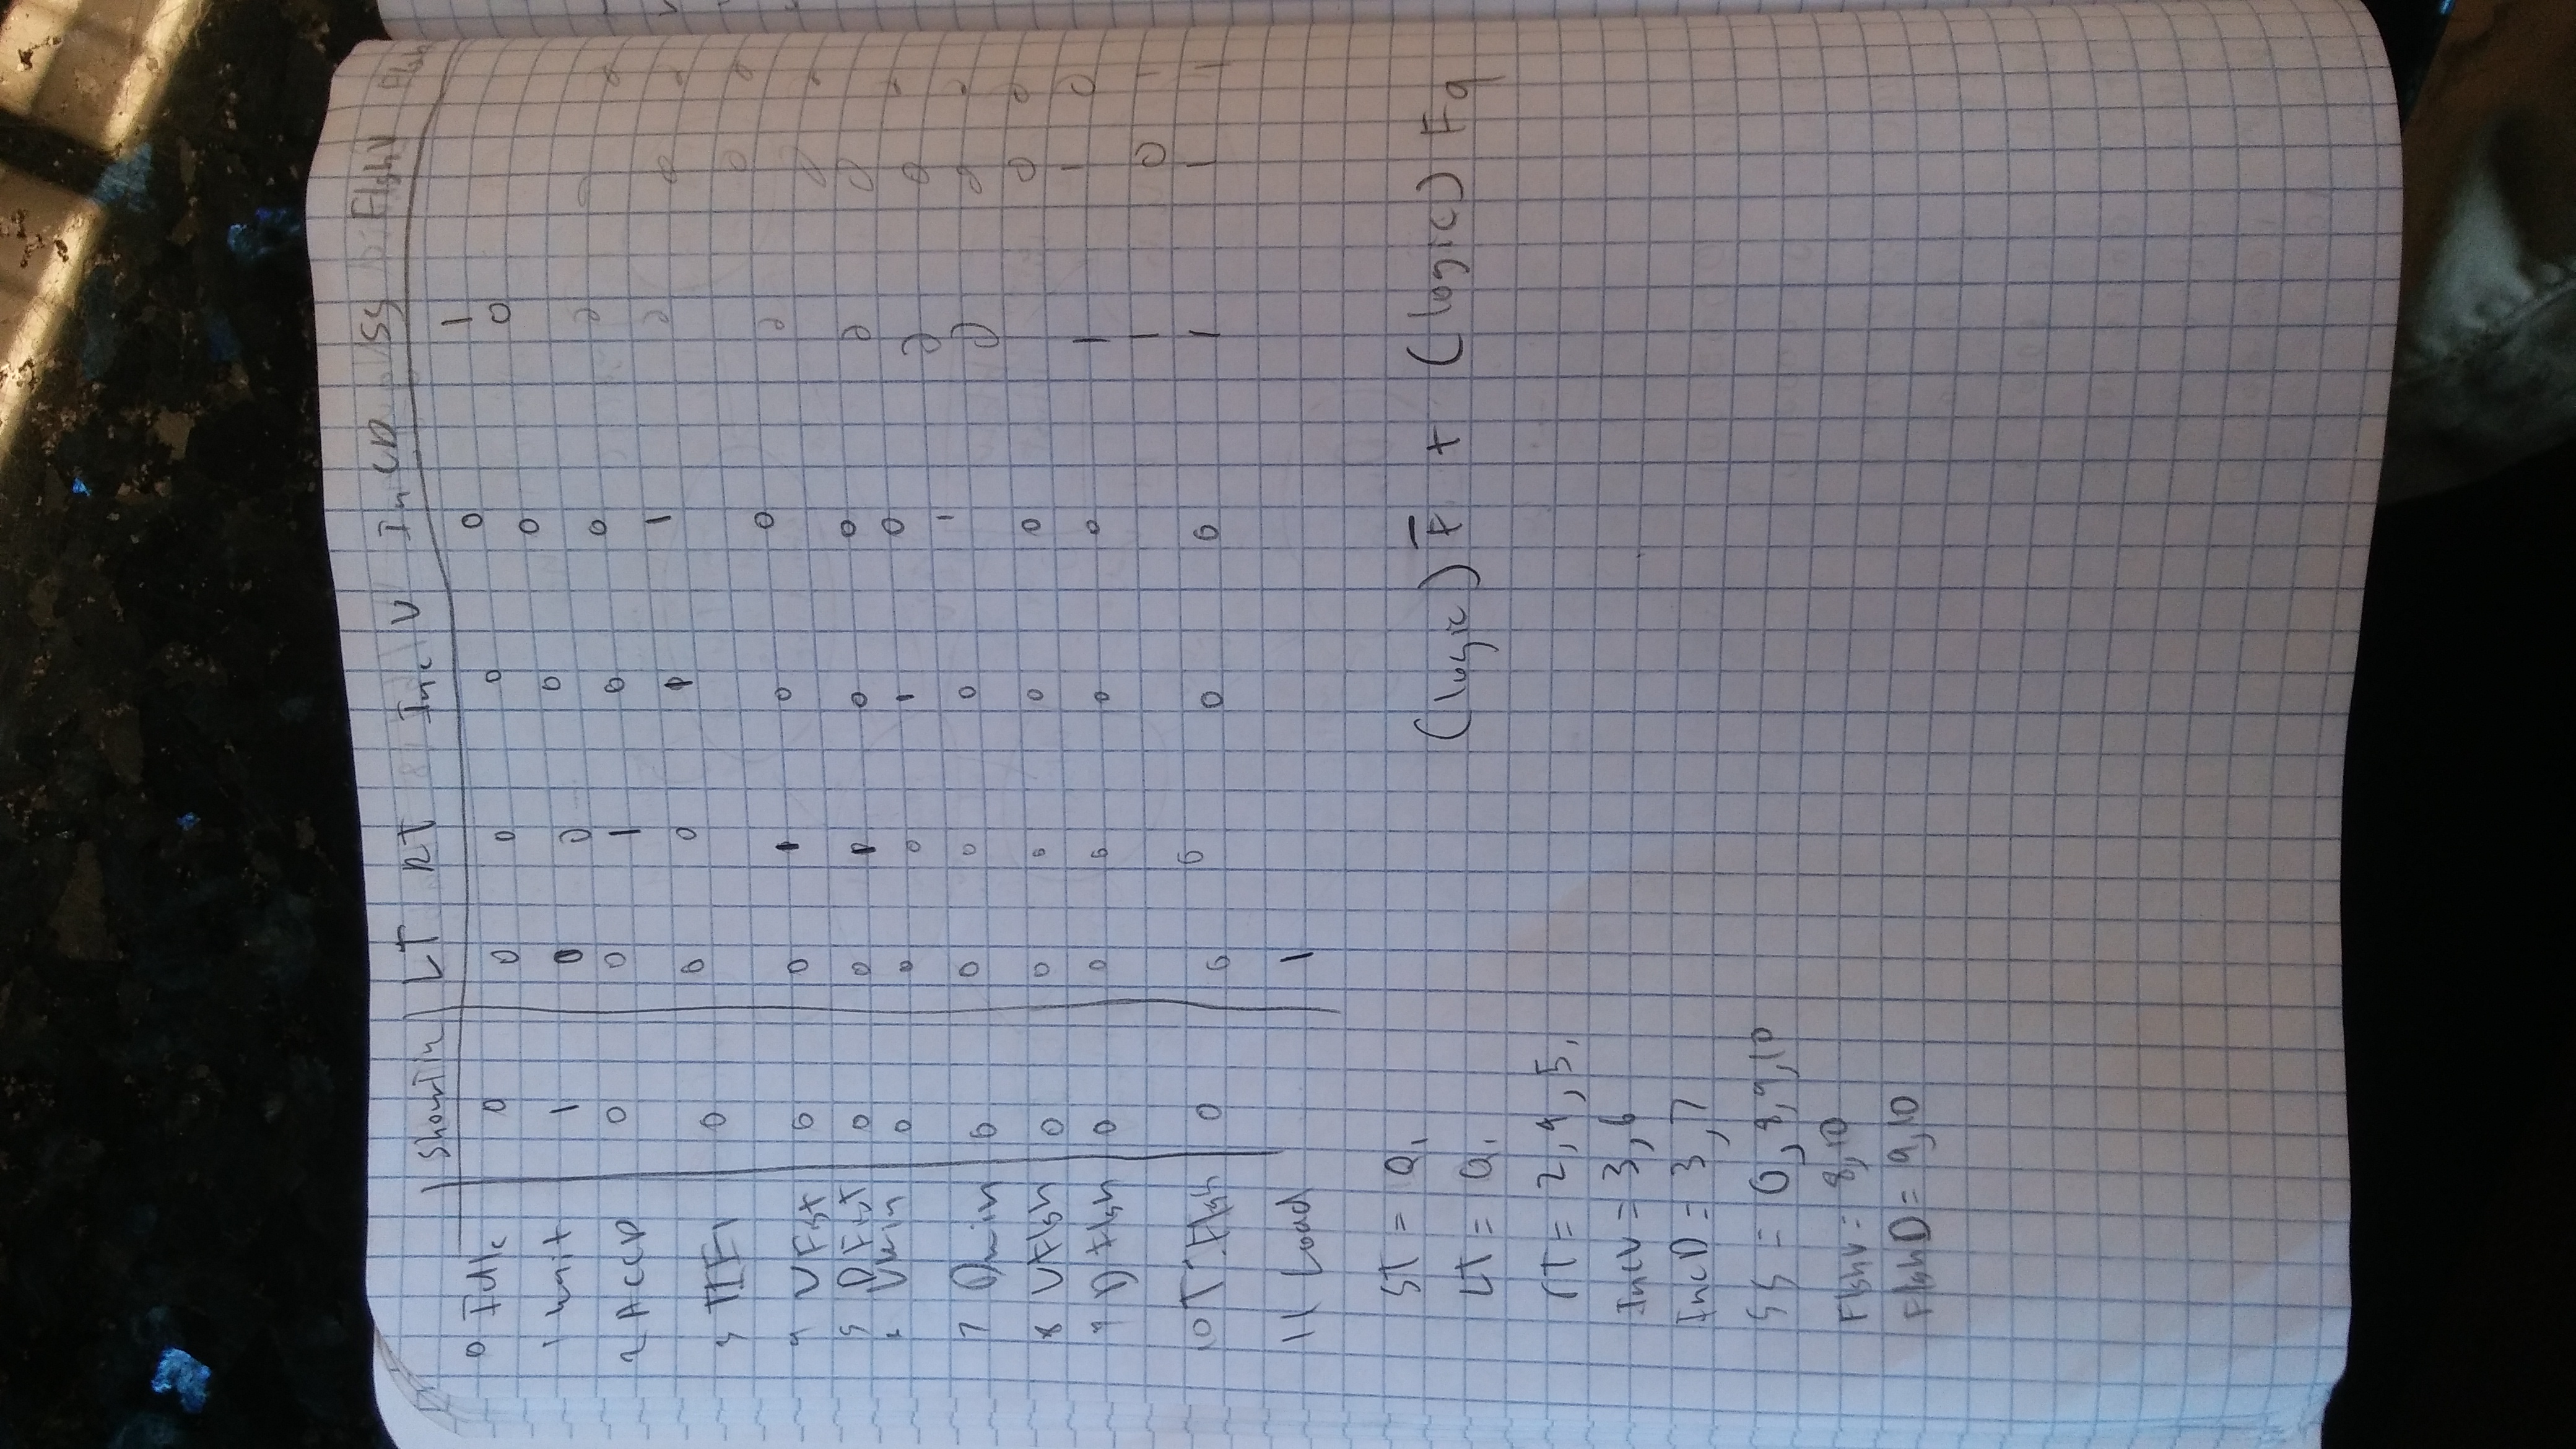 ShowTim LT RT Inc V Inc D SS FlshV Flsh
0 Idle 0 0 0 0 0 1
1 Wait 1 0 0 0 0 0
2 Accp 0 0 1 0 0 0
3 TIE 0 0 0 1 1 0 0 0
4 VFst 0 0 1 0 0 0 0 0
5 DFst 0 0 1 0 0 0 0 0
6 Vwin 0 0 0 1 0 0 0
7 Dwin 0 0 0 0 1 0 0
8 VFlsh 0 0 0 0 0 1 1 0
9 DFlsh 0 0 0 0 0 1 0 1
10 T.Flsh 0 0 0 0 0 1 1 1
11 Load 1
ST = Q1
LT = Q1
RT = 2,4,5,
IncV = 3,6
IncD = 3,7
SS = 0,8,9,10
FlshV = 8,10
FlshD = 9,10
(logic) F + (logic) Fq